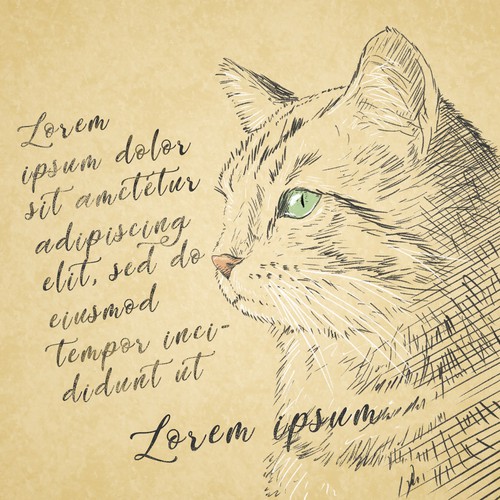 Lorem
ipsum dolor
sit ametetur
adipiscing
elit, sed do
eiusmod
tempor inci-
didunt ut
Lorem ipsum